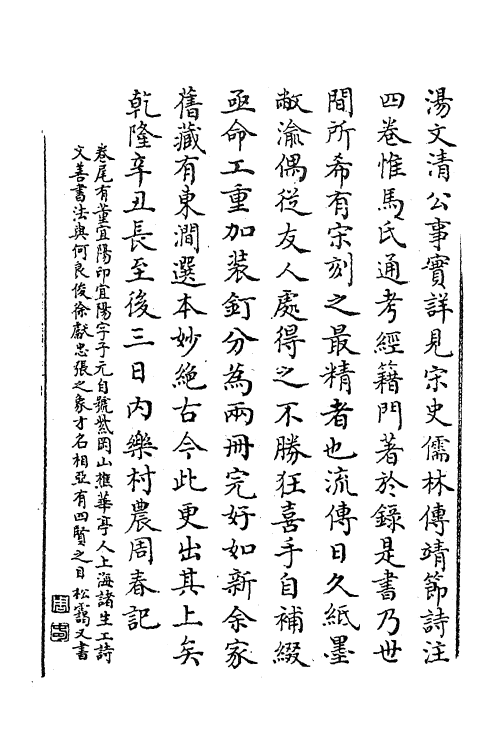 湯文清公事實詳見宋史儒林傳靖節詩注
四卷惟馬氏通考經籍門著於錄是書乃世
間所希有宋刻之最精者也流傳日久紙墨
敝渝偶從友人處得之不勝狂喜手自補綴
亟命工重加裝釘分為兩冊完好如新余家
舊藏有東澗選本妙絕古今此更出其上矣
乾隆辛丑長至後三日內樂村農周春記
卷尾有董宜陽印宜陽字子元自號紫岡山樵華亭人上海諸生工詩
文善書法與何良俊徐獻忠張之象才名相亞有四賢之目 松靄又書
周春